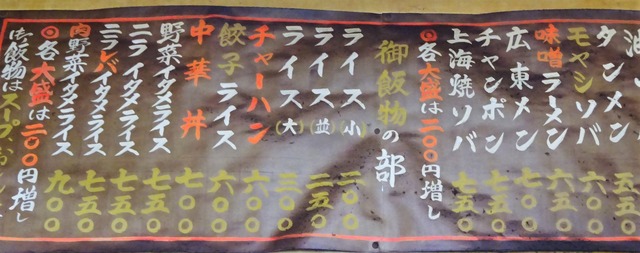 タンメン 五五〇
モヤシソバ 六〇〇
味噌ラーメン 六五〇
広東メン 七〇〇
チャンポン 七〇〇
上海焼ソバ 七五〇
◎各大盛は二〇〇円増し
御飯物の部
ライス(小) 二〇〇
ライス(並) 二五〇
ライス(大) 三〇〇
チャーハン 六〇〇
餃子ライス 六〇〇
中華丼 七〇〇
野菜イタメライス 七五〇
ニライタメライス 七五〇
ニラレバイタメライス 七五〇
肉野菜イタメライス 九〇〇
◎各大盛は二〇〇円増し
御飯物はスープ